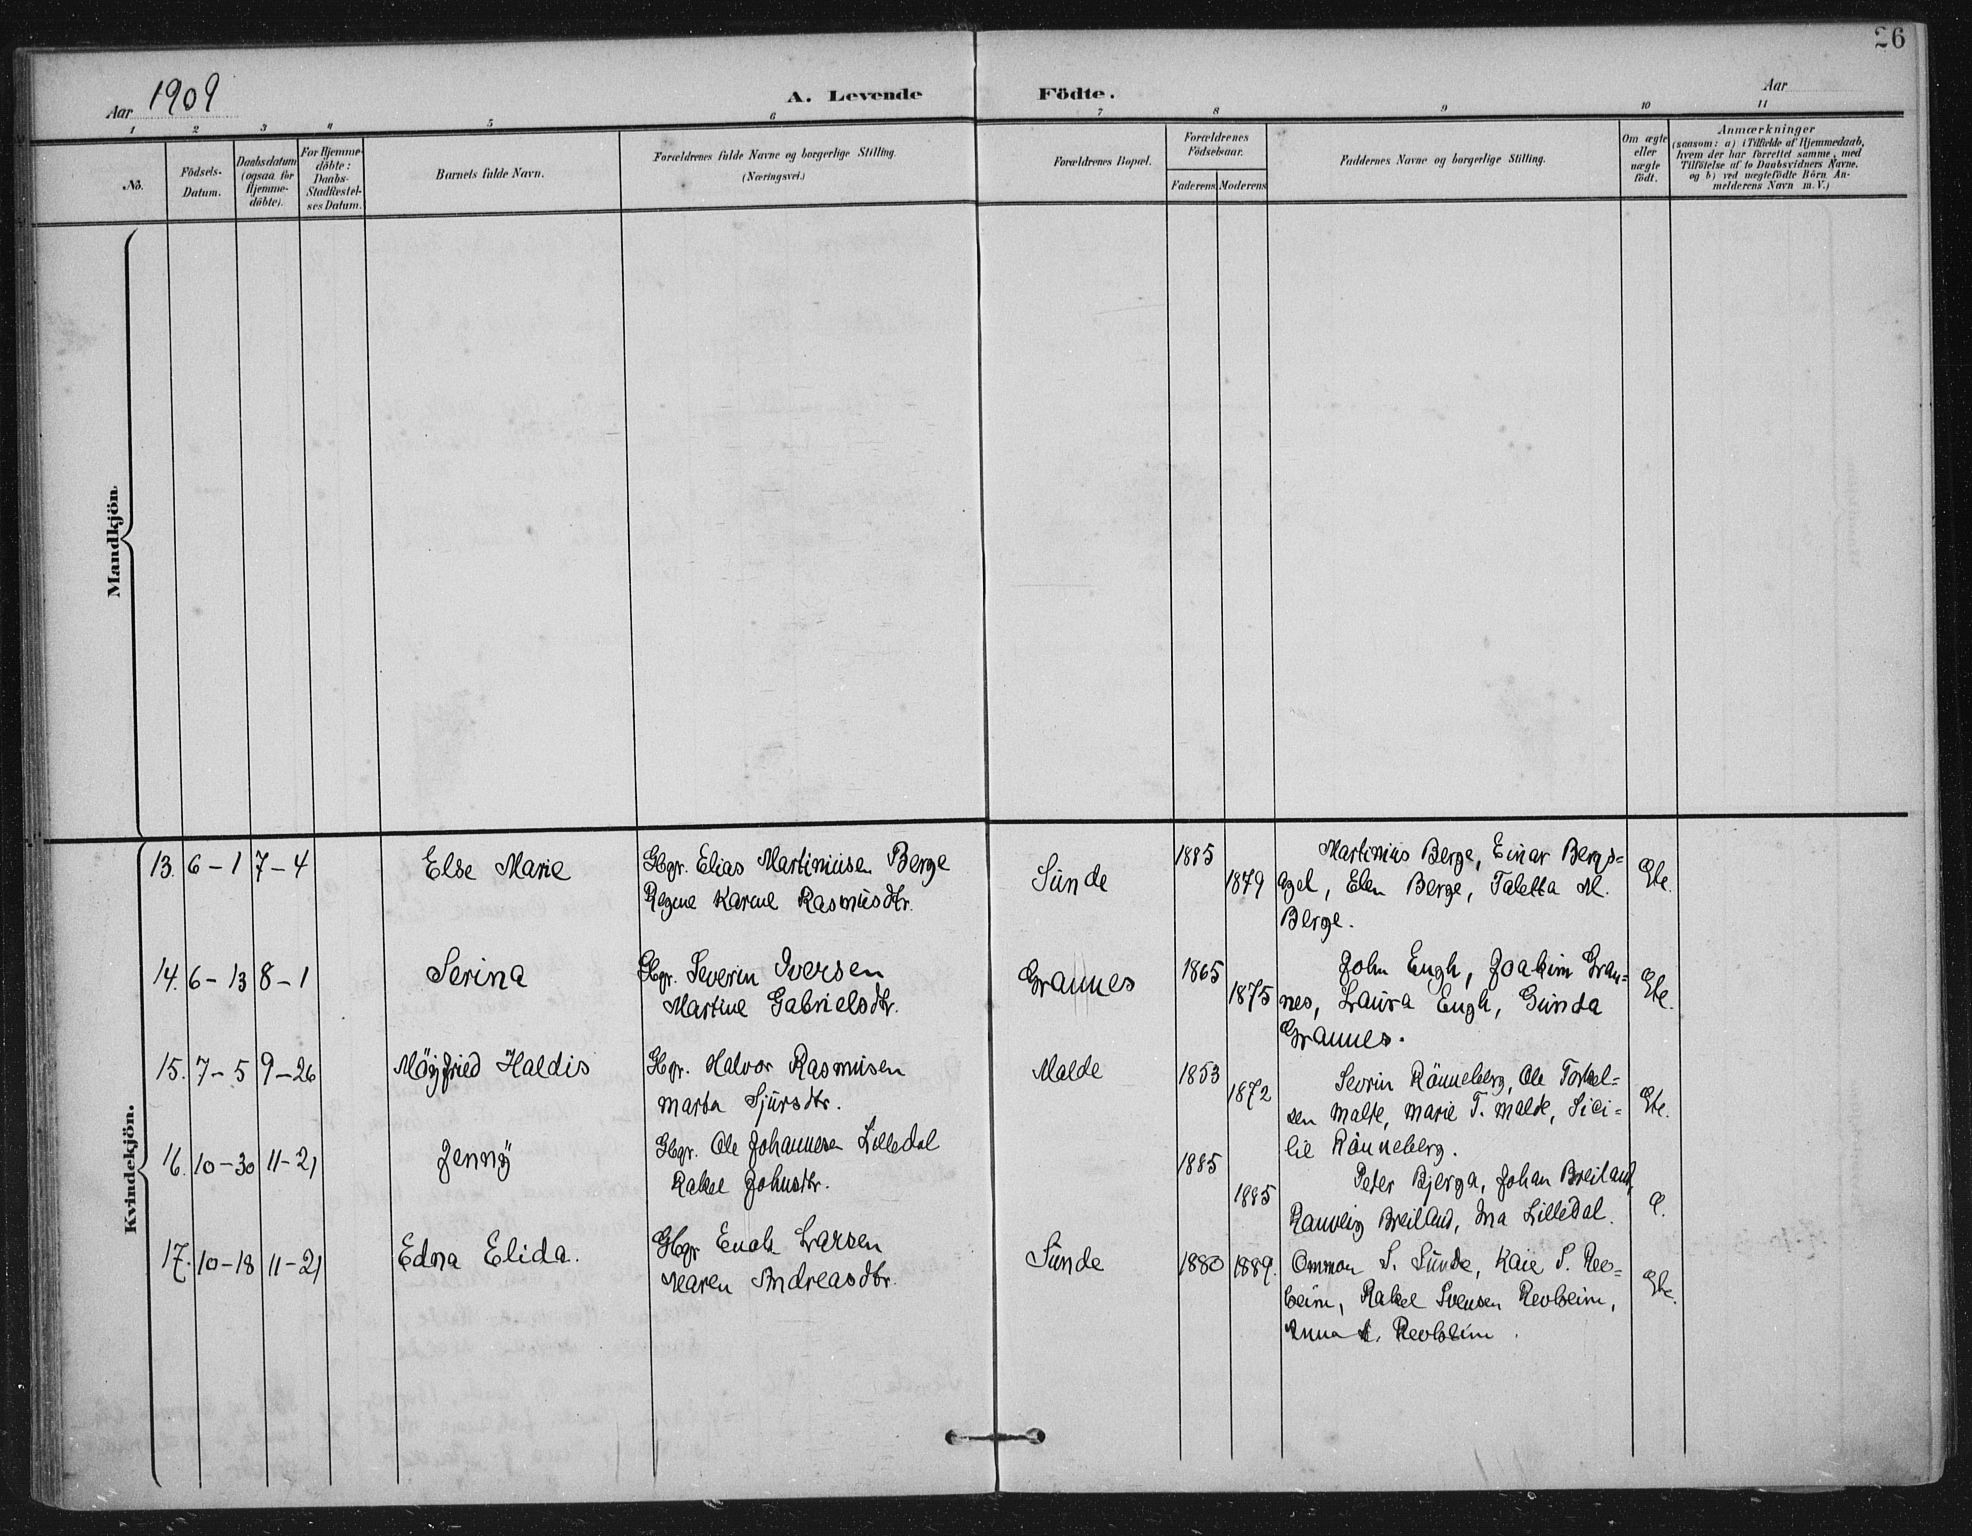 26
Aar 1909
A. Levende Födte.
Aar
1 2 3 4 5 6 7 8 9 10 11
No.
Födsels-
Datum.
Daabsdatum
(ogsaa for
Hjemme-
döbte).
For Hjemme-
döbte:
Daabs-
Stadfæstel-
ses Datum.
Barnets fulde Navn.
Forældrenes fulde Navne og borgerlige Stilling.
(Næringsvei.)
Forældrenes Bopæl.
Forældrenes
Födselsaar.
Faderens Moderens
Faddernes Navne og borgerlige Stilling.
Om ægte
eller
uægte
födt.
Anmærkninger
(saasom: a) i Tilfælde af Hjemmedaab,
hvem der har forrettet samme, med
Tilföielse af to Daabsvidners Navne,
og b) ved uægtefödte Börn An-
melderens Navn m. V.)
Mandkjön.
Kvindekjön.
13. 6-1 7-4 Else Marie
Gbgr. Elias Martiniusen Berge
Regine Karine Rasmusdtr.
Sunde
1885
1879
Martinius Berge, Einar Bergs-
agel, Elen Berge, Taletta M.
Berge.
Gte.
14. 6-13 8-1 Serina
Gbgr. Severin Iversen
Martine Gabrielsdtr.
Grannes
1865
1875
John Engh, Joakim Gran-
nes, Laura Engh, Gunda
Grannes.
Gte.
15. 7-5 9-26 Möyfried Haldis
Gbgr. Halvor Rasmusen
Marta Sjursdtr.
Malde
1853
1872
Sevrin Rönneberg, Ole Torkel-
sen Malde, Marie T. Malde, Sici-
lie Rönneberg.
Gte.
16. 10-30 11-21 Jenny
Gbgr. Ole Johannesen Lilledal
Rakel Johnsdtr.
1885
1885
Peter Bjerga, Johan Breiland,
Ranveig Breiland, Ina Lilledal.
17. 10-18 11-21 Edna Elida.
Gbgr Enok Larsen
Maren Andreasdtr.
Sunde
1880 1889.
Ommon S. Sunde, Kaie S. Rev-
heim, Rakel Svensen Revheim,
Anna Revheim.
Gte.